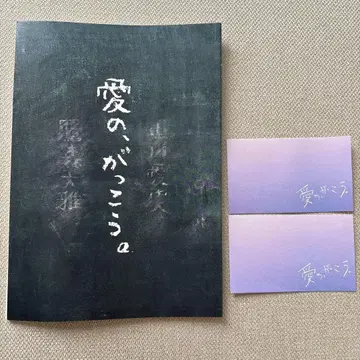 愛の、がっこう。
愛の、がっこう。
愛の、がっこう。